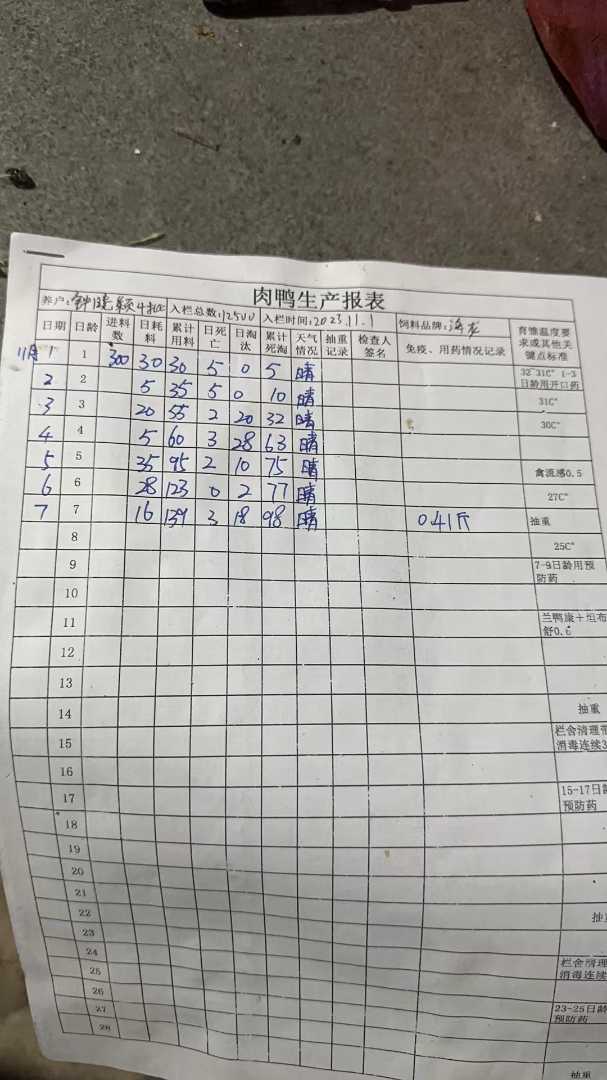 肉鸭生产报表
养户: 钟晓颖 4批 入栏总数:12500 入栏时间:2023.11.1 饲料品牌:海龙
日期 日龄 进料数 日耗料 累计用料 日死亡 日淘汰 累计死淘 天气情况 抽重记录 检查人签名 免疫、用药情况记录 育雏温度要求或其他关键点标准
11月 1 1 300 30 30 5 0 5 晴 32-31C° 1-3日龄用开口药
2 2 5 35 5 0 10 晴 31C°
3 3 20 55 2 20 32 晴 30C°
4 4 5 60 3 28 63 晴
5 5 35 95 2 10 75 晴 禽流感0.5
6 6 28 123 0 2 77 晴 27C°
7 7 16 139 3 18 98 晴 0.41斤 抽重
8 25C°
9 7-9日龄用预防药
10
11 兰鸭康+坦布舒0.6
12
13
14 抽重
15 栏舍清理 消毒连续3
16
17 15-17日龄 预防药
18
19
20
21
22 抽重
23
24 栏舍清理
25 消毒连续
26
27 23-25日龄 预防药
28 抽重